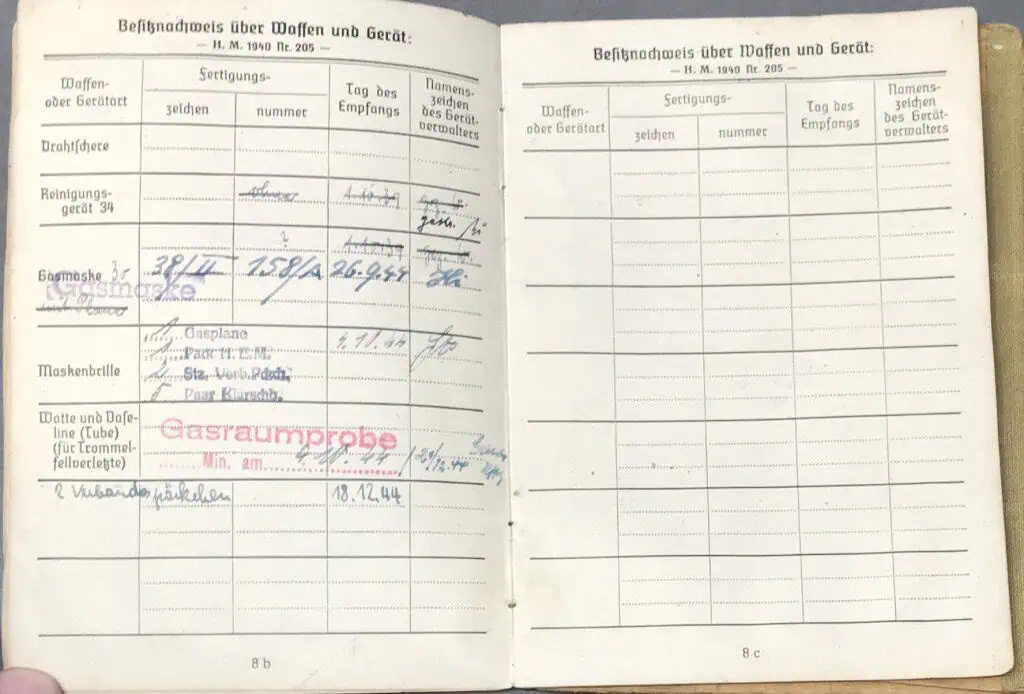 Besitznachweis über Waffen und Gerät:
— H. M. 1940 Nr. 205 —
Waffen-
oder Gerätart
Fertigungs-
zeichen
nummer
Tag des
Empfangs
Namens-
zeichen
des Gerät-
verwalters
Drahtschere
Reinigungs-
gerät 34
1.10.39
gestr.
?
1.10.39
Gasmaske 30
38/II 158/1a 26.9.44
Gasmaske
mit Plane
1 Gasplane 4.10.44
1 Pack H.E.M.
Maskenbrille
2 Stz. Verb.Pckch.
5 Paar Klarschb.
Watte und Vase-
line (Tube)
(für Trommel-
fellverletzte)
Gasraumprobe
Min. am 4.10.44
2 Verbandspäckchen 18.12.44
8 b
Besitznachweis über Waffen und Gerät:
— H. M. 1940 Nr. 205 —
Waffen-
oder Gerätart
Fertigungs-
zeichen
nummer
Tag des
Empfangs
Namens-
zeichen
des Gerät-
verwalters
8 c